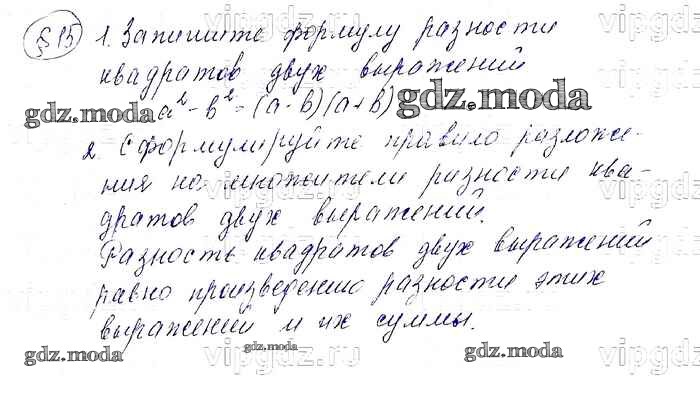 § 15 1. Запишите формулу разности
квадратов двух выражений
gdz.moda a² - b² = (a - b)(a + b) gdz.moda
2. Сформулируйте правило разложе-
ния на множители разности ква-
дратов двух выражений.
Разность квадратов двух выражений
равно произведению разности этих
выражений и их суммы.
gdz.moda gdz.moda gdz.moda
vipgdz.ru vipgdz.ru